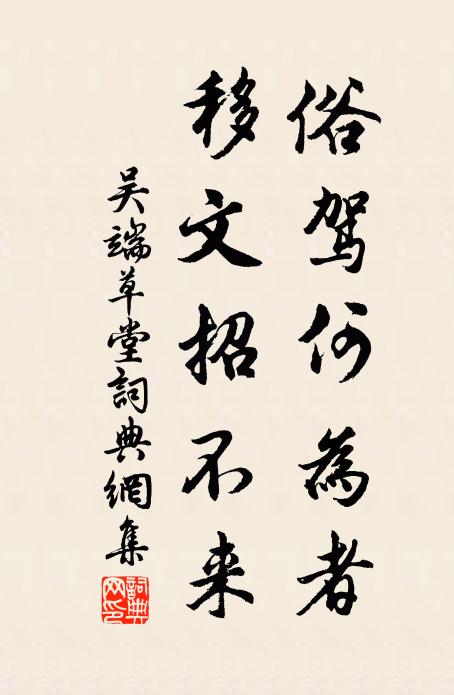 俗驾何為者
移文招不来
吴端草堂詞典網集
詞典
网印